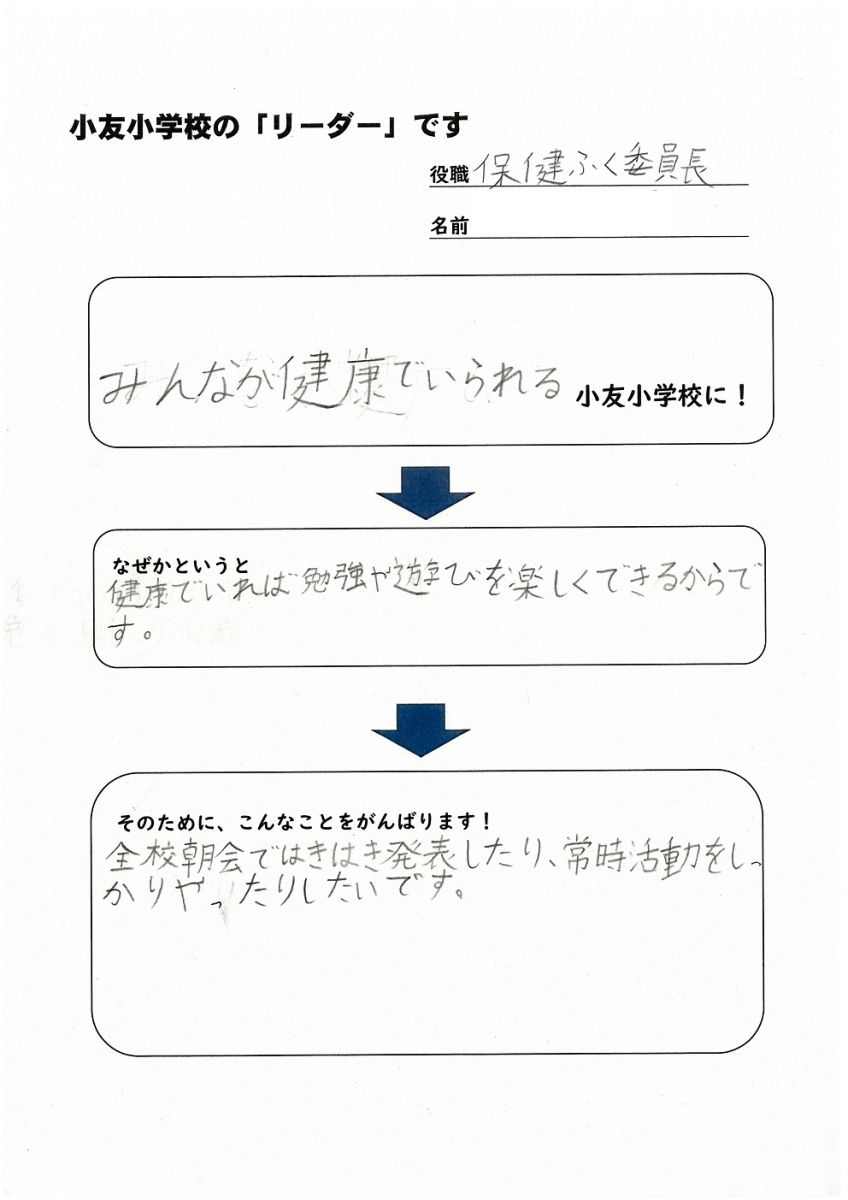 小友小学校の「リーダー」です
役職 保健ふく委員長
名前
みんなが健康でいられる 小友小学校に！
なぜかというと
健康でいれば勉強や遊びを楽しくできるからで
す。
そのために、こんなことをがんばります！
全校朝会ではきはき発表したり、常時活動をしっ
かりやったりしたいです。